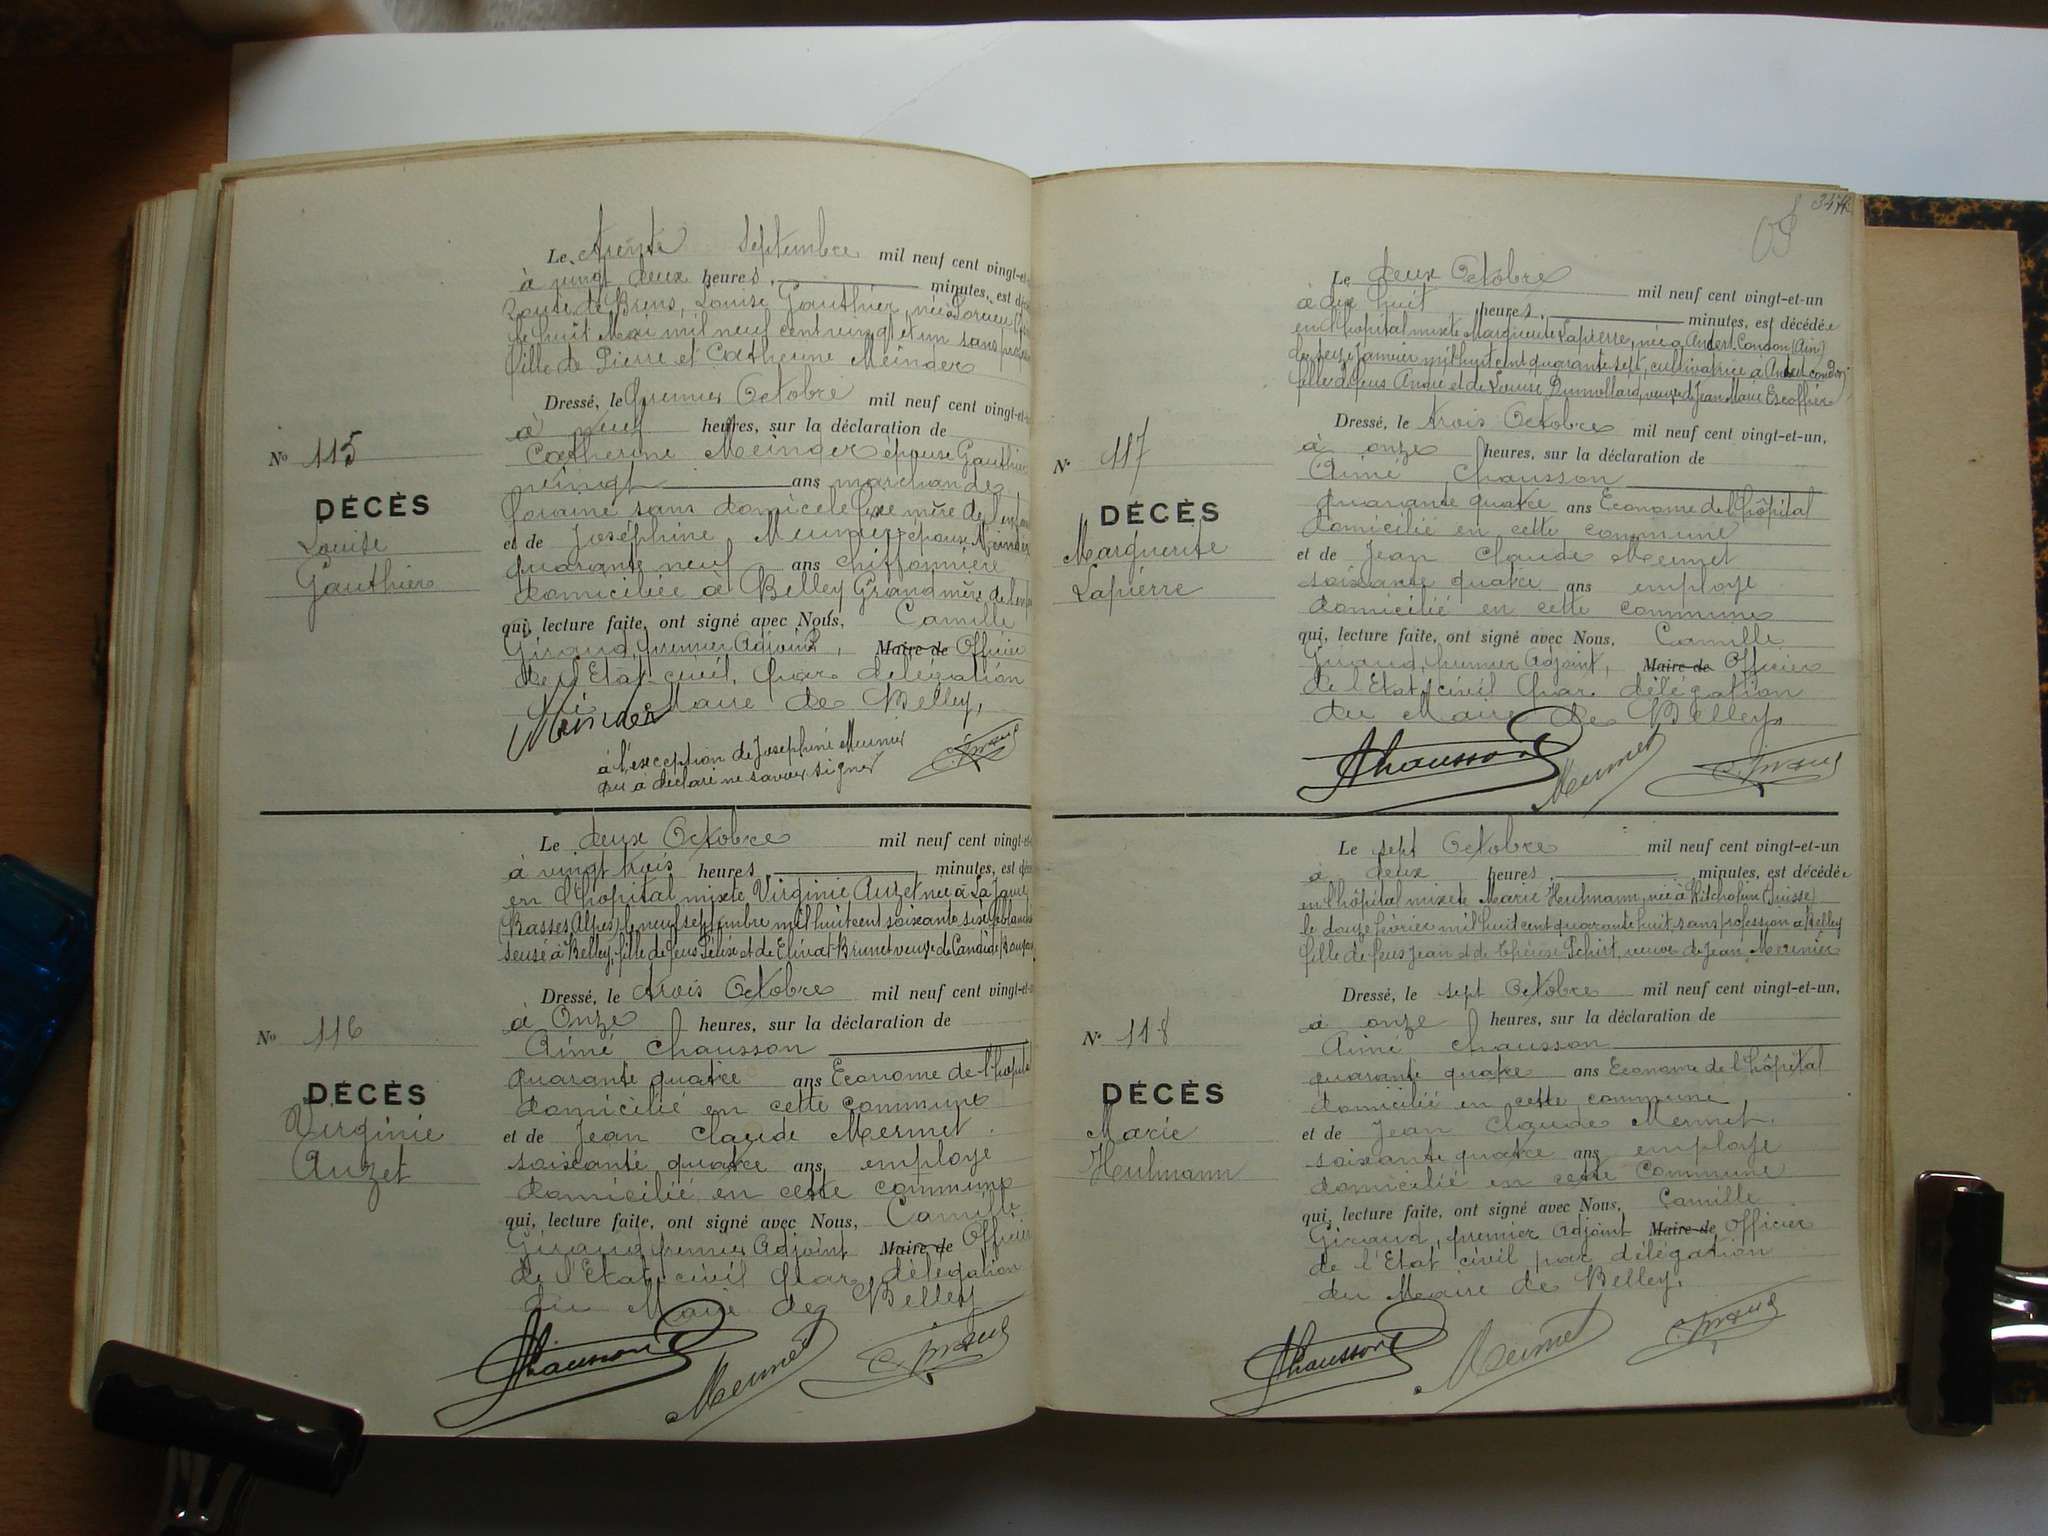 Le trente Septembre mil neuf cent vingt-et-
à vingt deux heures, minutes, est déc
Route de Brens, Louise Gauthier, née à
le huit Mai mil neuf cent vingt et un sans
fille de Pierre et Catherine Meinder
Dressé, le premier Octobre mil neuf cent vingt-et-
à neuf heures, sur la déclaration de
Catherine Meinder épouse Gauthier
vingt ans marchande
foraine sans domicile fixe mère de l'enfant
et de Joséphine Meunier épouse Meinder
quarante neuf ans chiffonnière
domiciliée à Belley Grand mère de l'enf
qui, lecture faite, ont signé avec Nous, Camille
Giraud, premier Adjoint, Maire de Officier
de l'Etat civil, par délégation
du Maire de Belley,
Meinder
à l'exception de Joséphine Meunier
qui a déclaré ne savoir signer
C. Giraud
No 115
DÉCÈS
Louise
Gauthier
Le deux Octobre mil neuf cent vingt-et-
à vingt trois heures minutes, est déc
en l'hopital mixte Virginie Auzet née à La
(Basses Alpes) le neuf septembre mil huit cent soixante six, blanchis
seuse à Belley, fille de feus et de Brunet veuve de Candide
Dressé, le trois Octobre mil neuf cent vingt-et-
à Onze heures, sur la déclaration de
Aimé Chausson
quarante quatre ans Econome de l'hopital
domicilié en cette commune
et de Jean Claude Mermet
soixante quatre ans, employé
domicilié en cette commune
qui, lecture faite, ont signé avec Nous, Camille
Giraud premier Adjoint Maire de Officier
de l'Etat civil par délégation
du Maire de Belley
Chausson Mermet C. Giraud
No 116
DÉCÈS
Virginie
Auzet
347
Le deux Octobre mil neuf cent vingt-et-un
à dix huit heures, minutes, est décédée
en l'hopital mixte Marguerite Lapierre, née à Andert-Condon (Ain)
le seize Janvier mil huit cent quarante sept, cultivatrice à Andert condon,
fille de feus André et de Louise Dumollard, veuve de Jean Marie Escoffier
Dressé, le trois Octobre mil neuf cent vingt-et-un,
à onze heures, sur la déclaration de
Aimé Chausson
quarante quatre ans Econome de l'hôpital
domicilié en cette commune
et de Jean Claude Mermet
soixante quatre ans employé
domicilié en cette commune
qui, lecture faite, ont signé avec Nous, Camille
Giraud, premier Adjoint, Maire de Officier
de l'Etat civil par délégation
du Maire de Belley,
Chausson Mermet C. Giraud
No 117
DÉCÈS
Marguerite
Lapierre
Le sept Octobre mil neuf cent vingt-et-un
à deux heures, minutes, est décédée
en l'hôpital mixte Marie Heulmann, née à Kirchofen (Suisse)
le douze Février mil huit cent quarante huit, sans profession à Belley
fille de feus Jean et de thérèse Schirt, veuve de Jean Meunier
Dressé, le sept Octobre mil neuf cent vingt-et-un,
à onze heures, sur la déclaration de
Aimé Chausson
quarante quatre ans Econome de l'hôpital
domicilié en cette commune,
et de Jean Claude Mermet.
soixante quatre ans employé
domicilié en cette Commune
qui, lecture faite, ont signé avec Nous, Camille
Giraud, premier Adjoint Maire de Officier
de l'Etat civil par délégation
du Maire de Belley,
Chausson Mermet C. Giraud
No 118
DÉCÈS
Marie
Heulmann